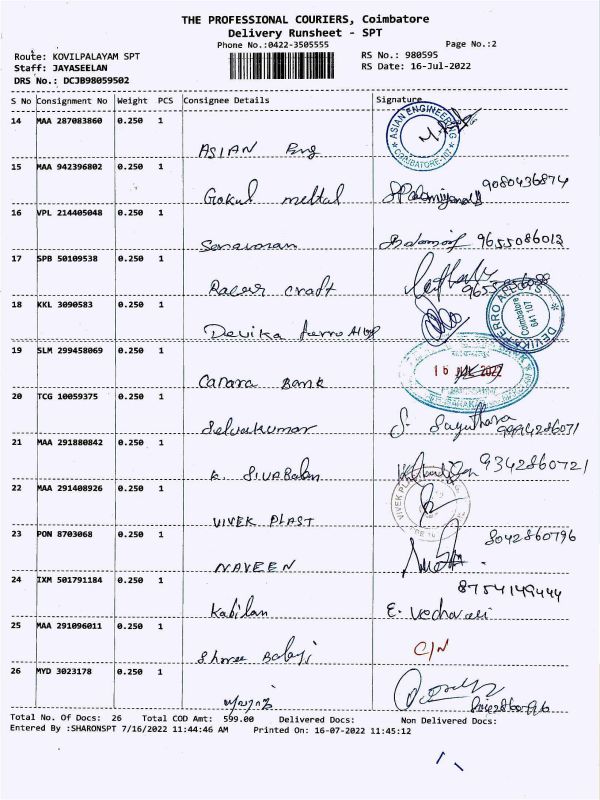 THE PROFESSIONAL COURIERS, Coimbatore
Delivery Runsheet - SPT
Phone No.:0422-3505555
Page No.:2
Route: KOVILPALAYAM SPT
RS No.: 980595
Staff: JAYASEELAN
RS Date: 16-Jul-2022
DRS No.: DCJB98059502
S No Consignment No Weight PCS Consignee Details Signature
14 MAA 287083860 0.250 1
ASIAN Eng
ASIAN ENGINEERING * COIMBATORE-107 *
15 MAA 942396802 0.250 1
Gokul mettal 9080436874
16 VPL 214405048 0.250 1
Saravanan 9655086013
17 SPB 50109538 0.250 1
Racer craft
18 KKL 3090583 0.250 1
Devika ferro Alloy
DEVIKA FERRO ALLOYS * Coimbatore 641 107
19 SLM 299458069 0.250 1
Canara Bank
16 2022
20 TCG 10059375 0.250 1
Selvakumar S. 9994286071
21 MAA 291880842 0.250 1
K. SIVABalan 9342860721
22 MAA 291408926 0.250 1
VIVEK PLAST
23 PON 8703068 0.250 1
NAVEEN 8042860796
24 IXM 501791184 0.250 1
8754149444
Kabilan E. Vedhavasi
25 MAA 291096011 0.250 1
Shree Balaji C/N
26 MYD 3023178 0.250 1
Total No. Of Docs: 26 Total COD Amt: 599.00 Delivered Docs: Non Delivered Docs:
Entered By :SHARONSPT 7/16/2022 11:44:46 AM Printed On: 16-07-2022 11:45:12